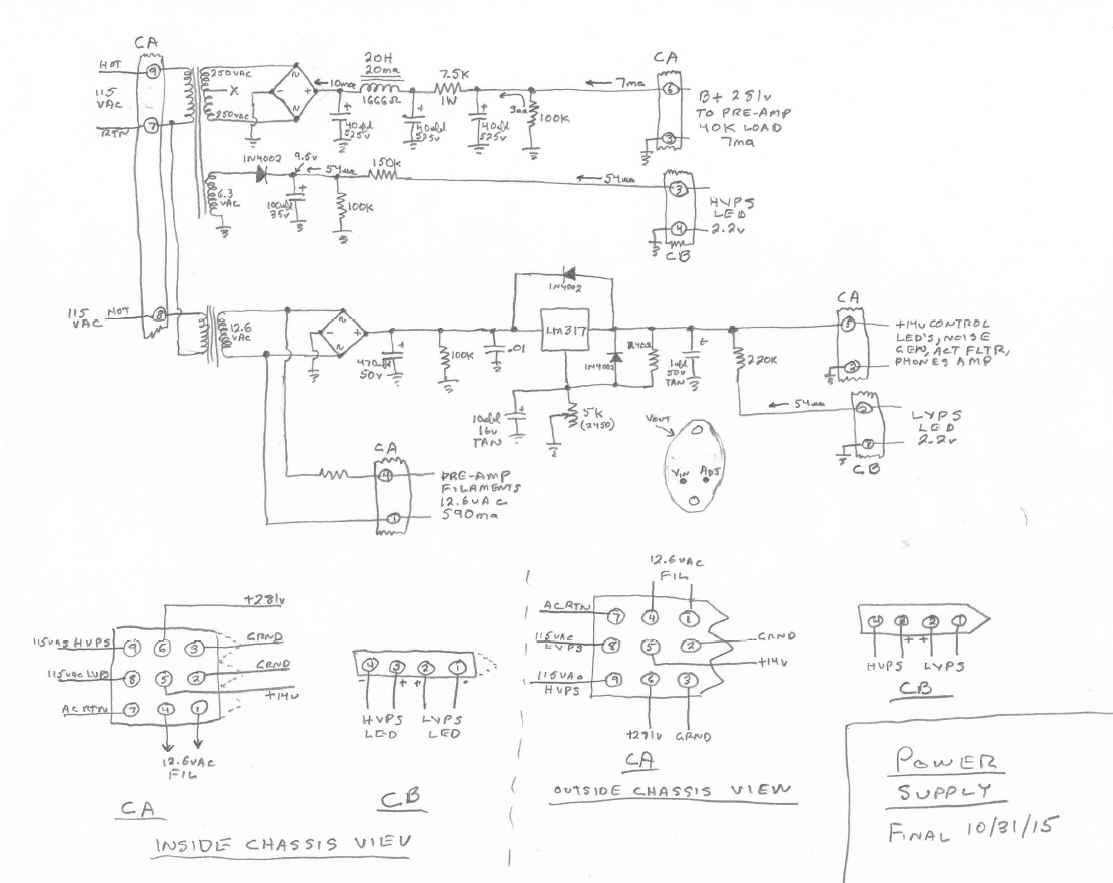 CA
HOT
9
115
VAC
RTN
7
250VAC
X
250VAC
~
-
+
~
10ma
20H
20ma
1666Ω
7.5K
1W
+
40ufd
525v
+
40ufd
525v
+
40ufd
525v
100K
7ma
CA
6
3
B+ 281v
TO PRE-AMP
40K LOAD
7ma
1N4002
9.5v
6.3
VAC
+
100ufd
35v
100K
150K
3
4
CB
HVPS
LED
2.2v
115
VAC
HOT
8
12.6
VAC
~
-
+
~
+
470ufd
50v
100K
.01
1N4002
LM317
1N4002
+
1ufd
50v
TAN
220K
+
10ufd
16v
TAN
5K
(2450)
CA
5
+14v CONTROL
LED'S, NOISE
GEN, ACT FLTR,
PHONES AMP
2
CB
LVPS
LED
2.2v
VOUT
VIN
ADJ
CA
4
1
PRE-AMP
FILAMENTS
12.6VAC
590ma
+281v
115VAC HVPS
9
6
3
GRND
115VAC LVPS
8
5
2
GRND
+14v
AC RTN
7
4
1
12.6VAC
FIL
CA
4
3
2
1
-
+
+
HVPS
LED
LVPS
LED
CB
INSIDE CHASSIS VIEW
12.6VAC
FIL
AC RTN
7
4
1
115VAC
LVPS
8
5
2
GRND
+14v
115VAC
HVPS
9
6
3
+281v
GRND
CA
OUTSIDE CHASSIS VIEW
4
3
2
1
+
+
HVPS
LVPS
CB
POWER
SUPPLY
FINAL 10/31/15